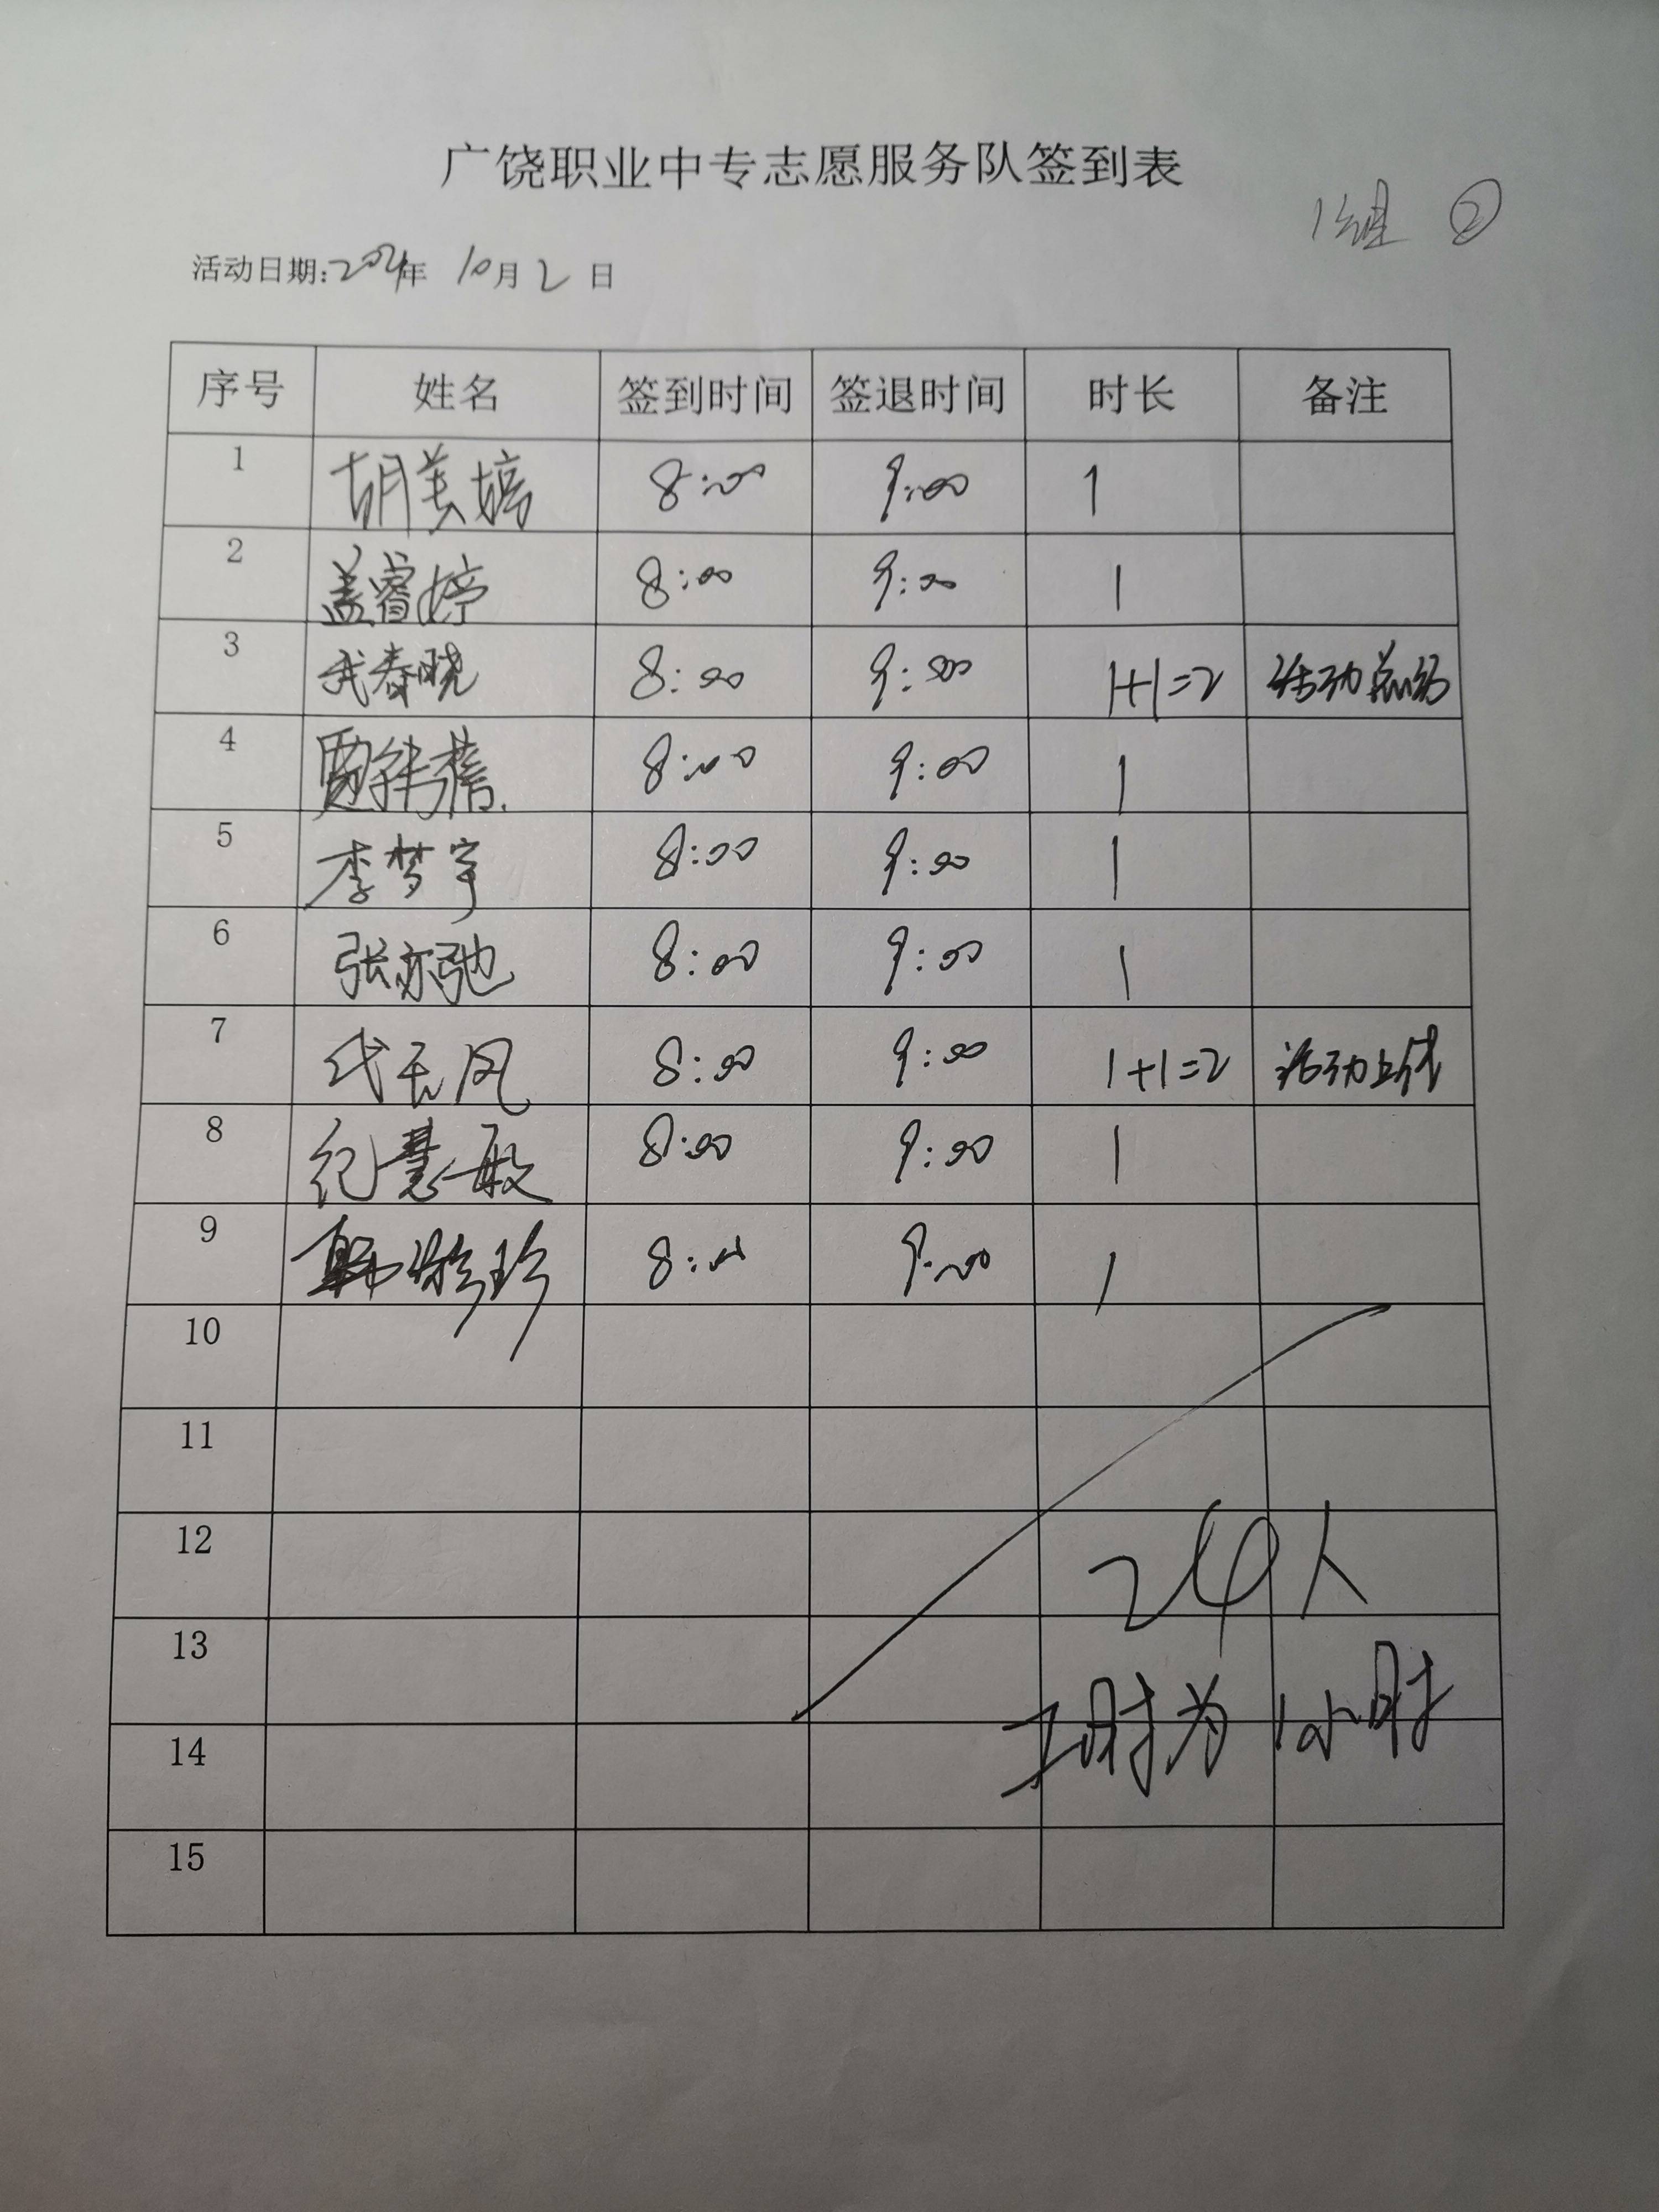 广饶职业中专志愿服务队签到表
1组 ②
活动日期:2024年 10月2日
序号 姓名 签到时间 签退时间 时长 备注
1 胡美嫱 8:00 9:00 1
2 盖睿婷 8:00 9:00 1
3 武春晓 8:00 9:00 1+1=2 活动总结
4 贾祥蕴 8:00 9:00 1
5 李梦宇 8:00 9:00 1
6 张亦弛 8:00 9:00 1
7 代玉凤 8:00 9:00 1+1=2 活动上传
8 纪慧敏 8:00 9:00 1
9 珍 8:00 9:00 1
10
11
12
24人
13
工时为1小时
14
15